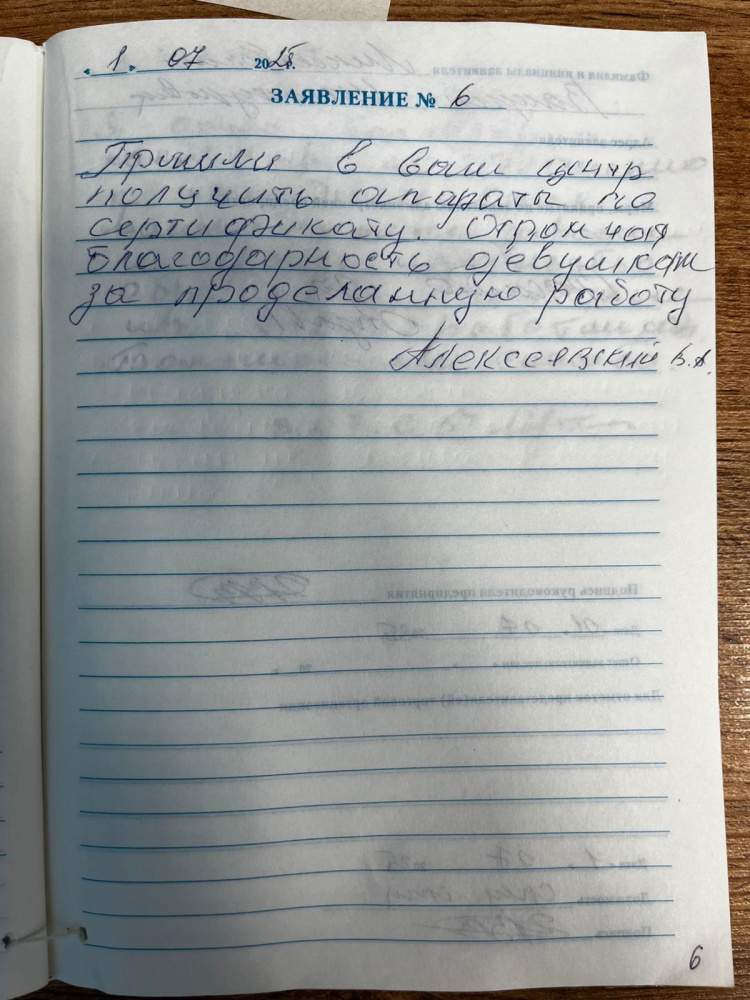 « 1 » 07 2025г.
ЗАЯВЛЕНИЕ № 6
Пришли в ваш центр
получить апараты по
сертификату. Огромная
благодарность девушкам
за проделанную работу
Алексеевский В.А.
6